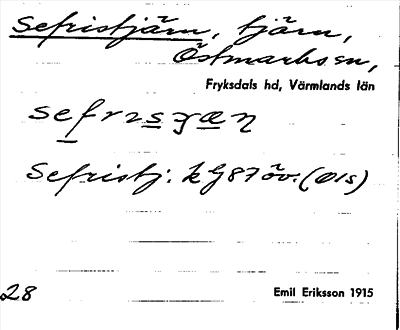 Sefristjärn, tjärn,
Östmarks sn,
Fryksdals hd, Värmlands län
Sefristj. k G87 öv. (ØIS)
28
Emil Eriksson 1915